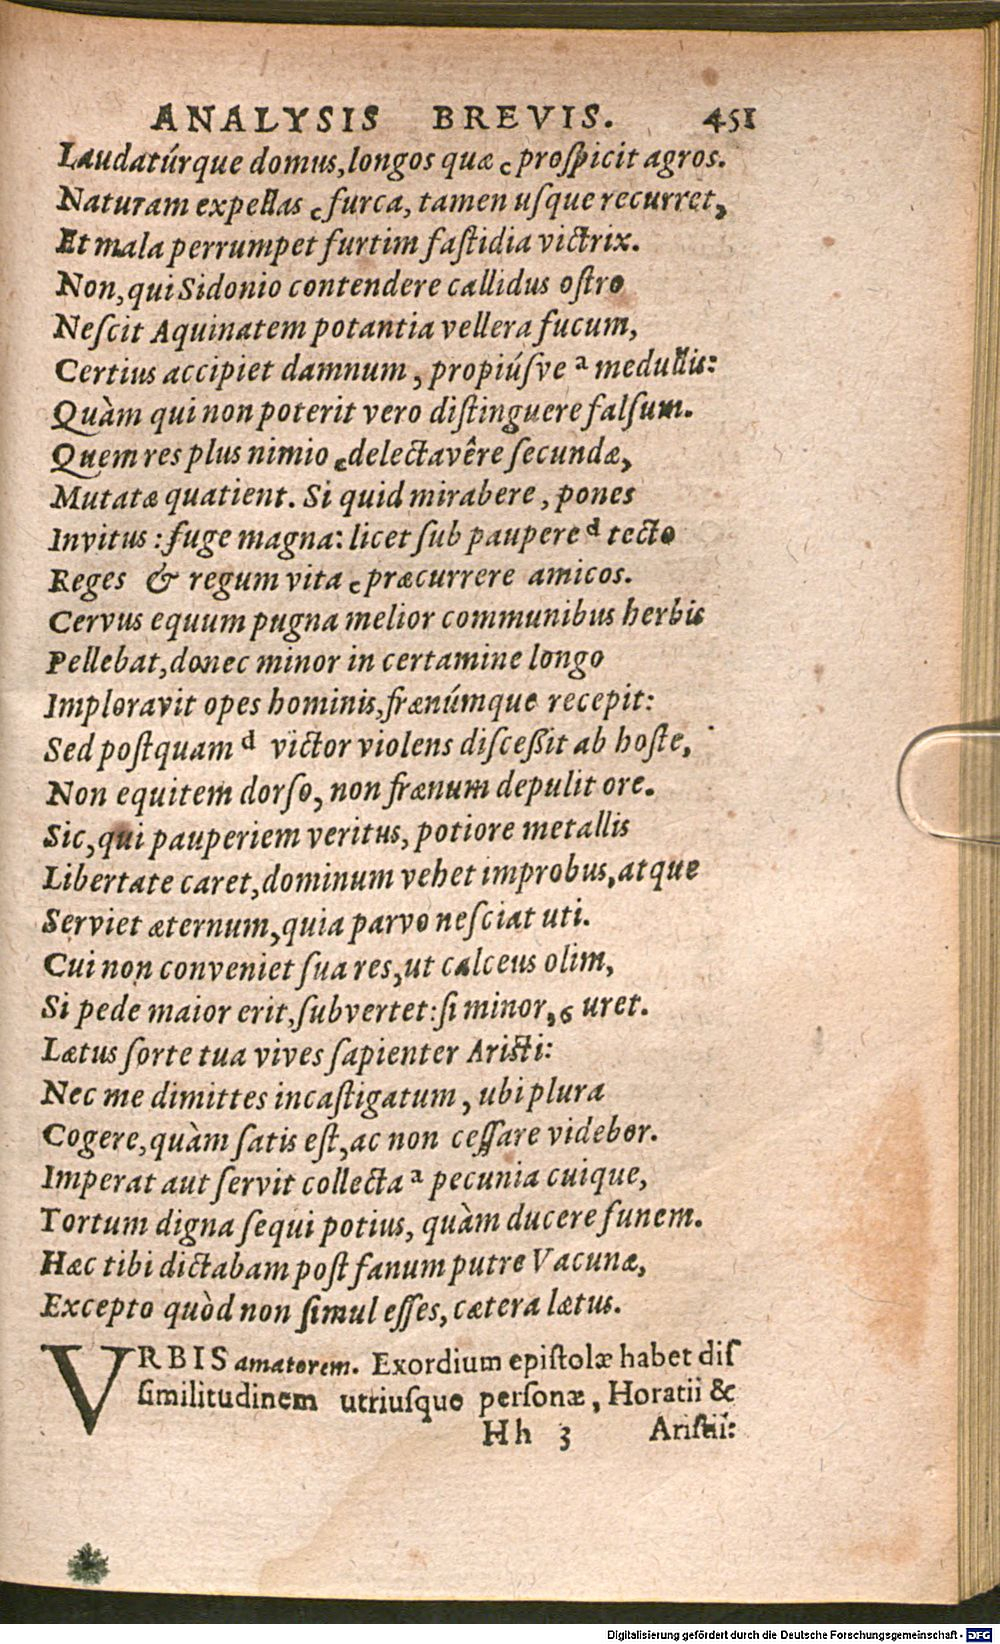 ANALYSIS BREVIS. 451
Laudatúrque domus, longos quæ c prospicit agros.
Naturam expellas c furca, tamen usque recurret,
Et mala perrumpet furtim fastidia victrix.
Non, qui Sidonio contendere callidus ostro
Nescit Aquinatem potantia vellera fucum,
Certius accipiet damnum, propiúsve a medullis:
Quàm qui non poterit vero distinguere falsum.
Quem res plus nimio c delectavêre secundæ,
Mutatæ quatient. Si quid mirabere, pones
Invitus: fuge magna: licet sub paupere d tecto
Reges & regum vita c præcurrere amicos.
Cervus equum pugna melior communibus herbis
Pellebat, donec minor in certamine longo
Imploravit opes hominis, frænúmque recepit:
Sed postquam d victor violens discessit ab hoste,
Non equitem dorso, non frænum depulit ore.
Sic, qui pauperiem veritus, potiore metallis
Libertate caret, dominum vehet improbus, atque
Serviet æternum, quia parvo nesciat uti.
Cui non conveniet sua res, ut calceus olim,
Si pede maior erit, subvertet: si minor, 6 uret.
Lætus sorte tua vives sapienter Aristi:
Nec me dimittes incastigatum, ubi plura
Cogere, quàm satis est, ac non cessare videbor.
Imperat aut servit collecta a pecunia cuique,
Tortum digna sequi potius, quàm ducere funem.
Hæc tibi dictabam post fanum putre Vacunæ,
Excepto quòd non simul esses, cætera lætus.
VRBIS amatorem. Exordium epistolæ habet dis
similitudinem utriusque personæ, Horatii &
Hh 3 Aristii:
Digitalisierung gefördert durch die Deutsche Forschungsgemeinschaft - DFG